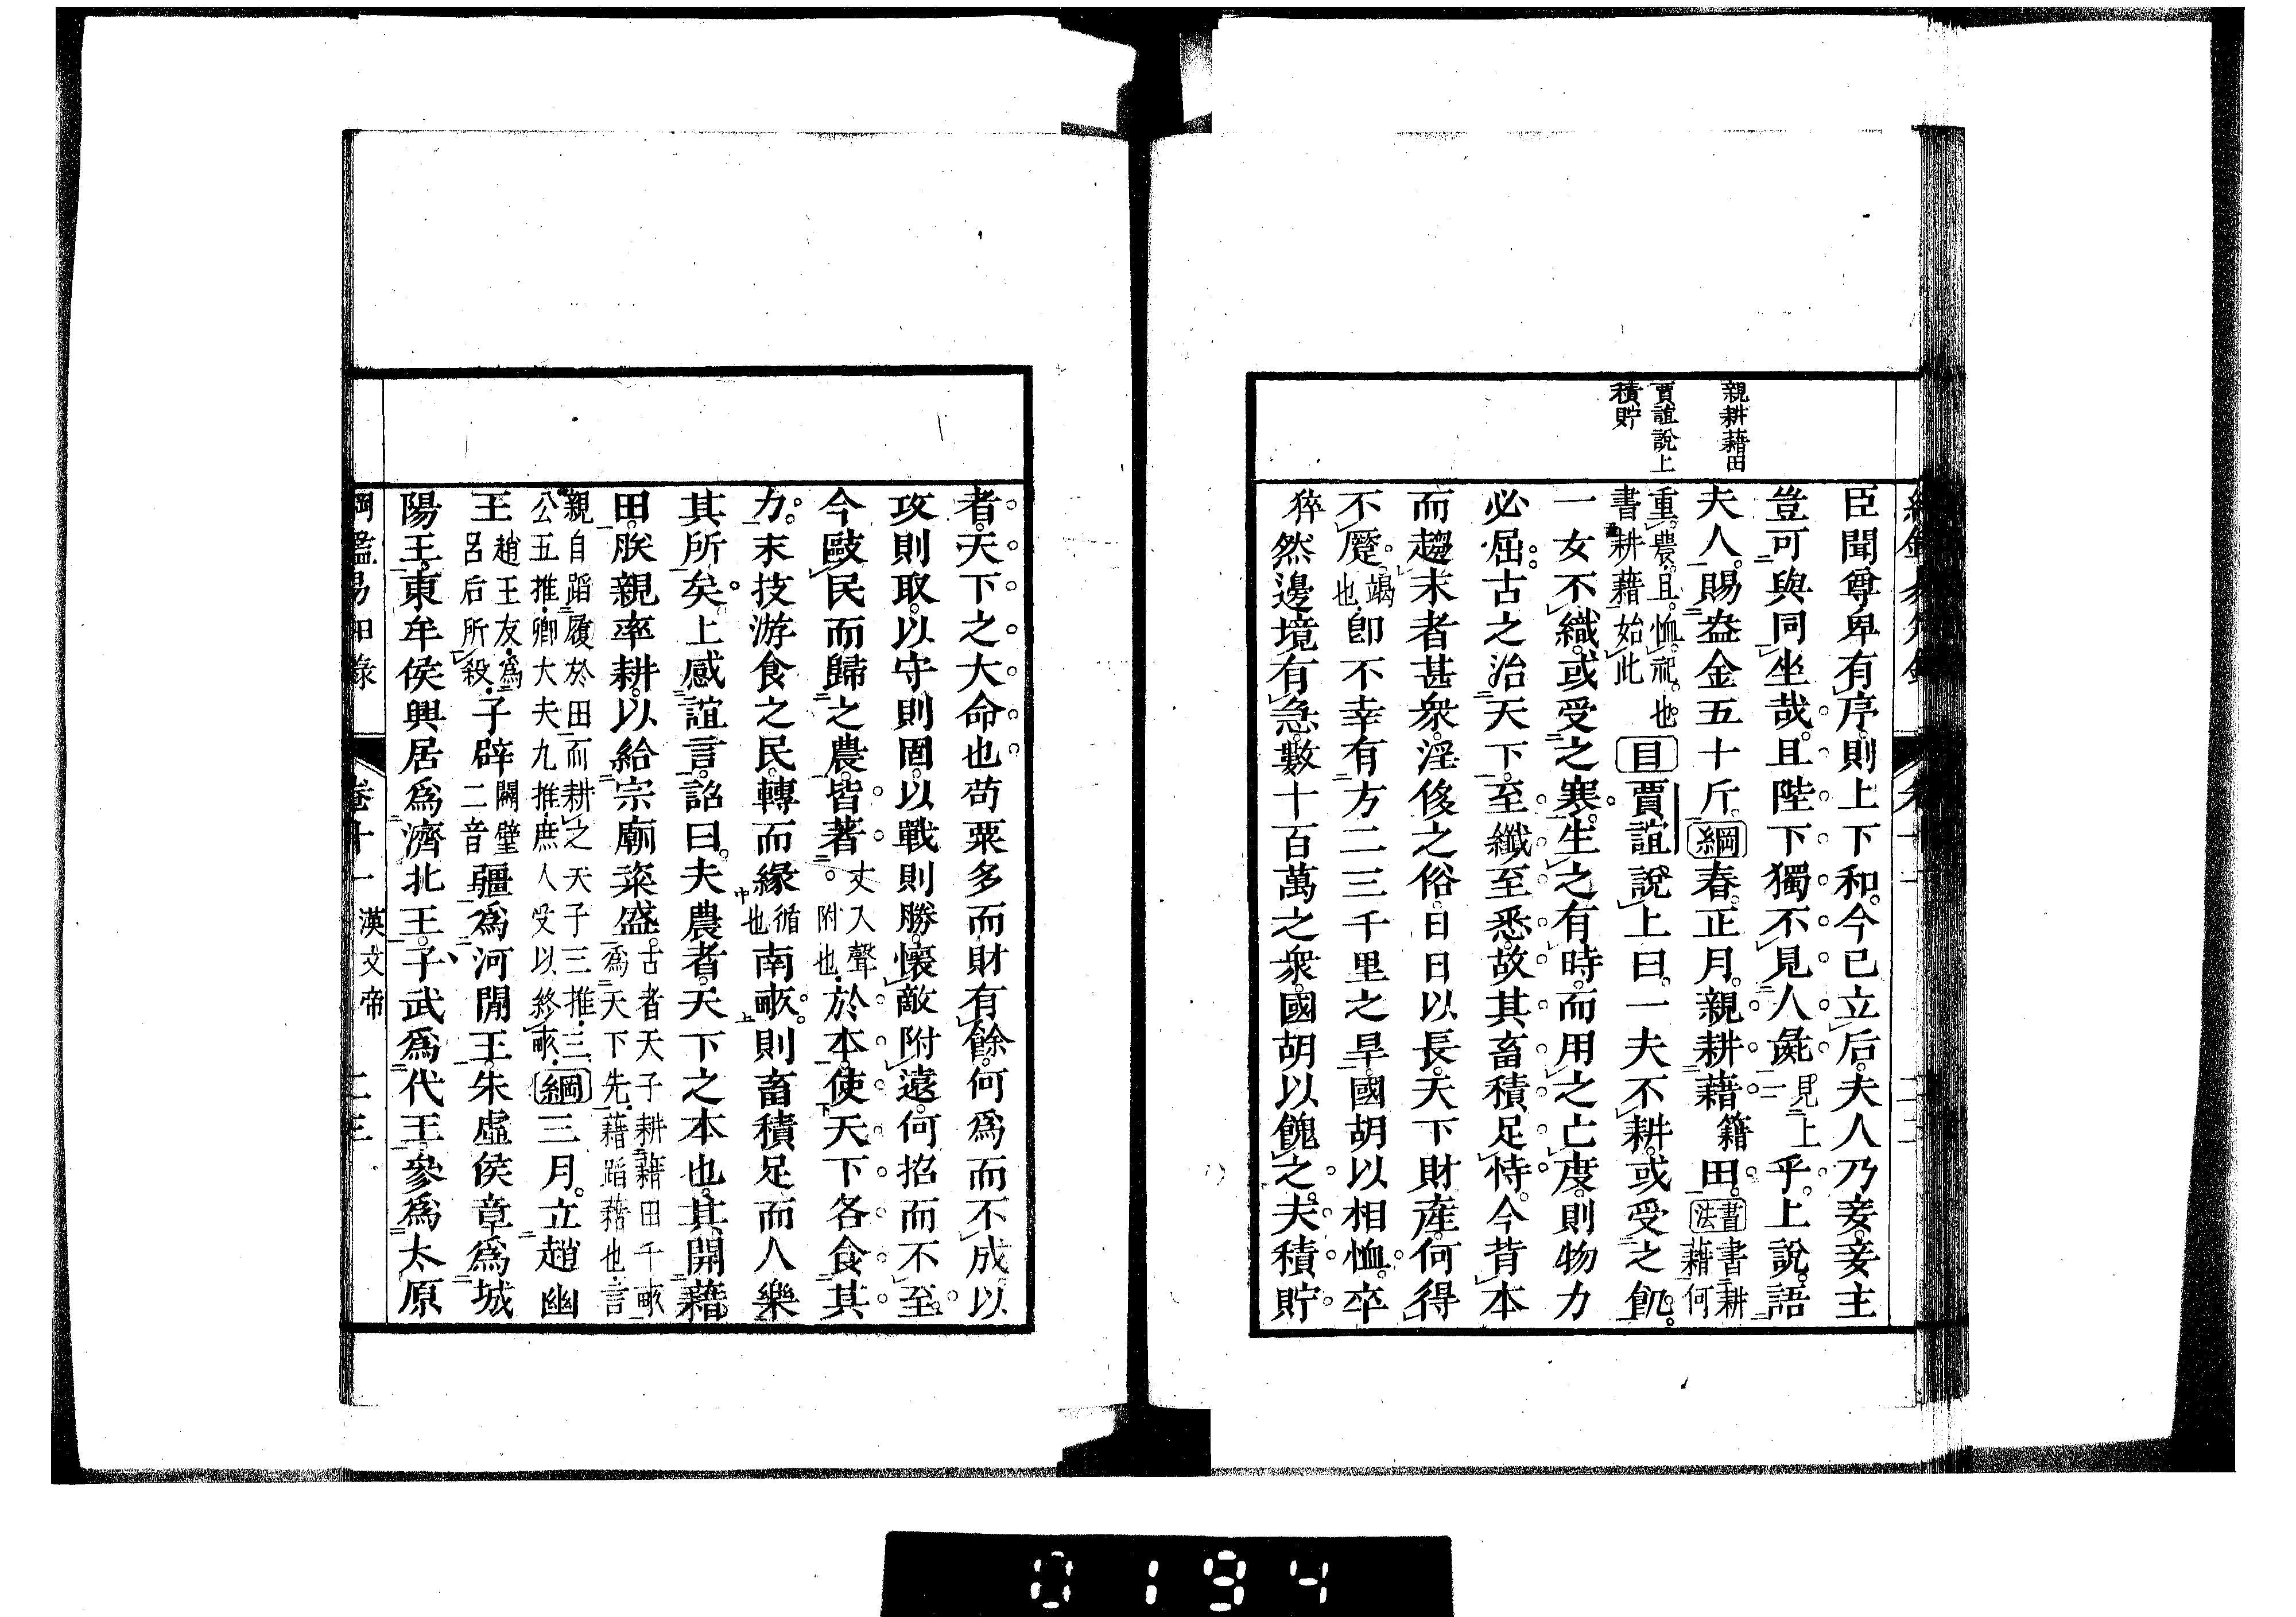 親耕藉田
賈誼說上
積貯
臣聞尊卑有序。則上下和。今已立后。夫人乃妾。妾主
豈可與同坐哉。且陛下獨不見人彘見上乎。上說。語
夫人。賜盎金五十斤。綱春。正月。親耕藉籍田。書法書耕藉何
重農。且恤祀也書耕藉始此目賈誼說上曰。一夫不耕。或受之飢。
一女不織。或受之寒。生之有時。而用之亡度。則物力
必屈。古之治天下。至纖至悉。故其畜積足恃。今背本
而趨末者甚衆。淫侈之俗。日日以長。天下財產。何得
不蹷。竭也即不幸有方二三千里之旱。國胡以相恤。卒
猝然邊境有急。數十百萬之衆。國胡以餽之。夫積貯
者。天下之大命也。苟粟多而財有餘。何爲而不成。以
攻則取。以守則固。以戰則勝。懷敵附遠。何招而不至。
今敺民而歸之農。皆著丈入聲。附也。於本。使天下各食其
力。末技游食之民。轉而緣循也南畝。則畜積足而人樂
其所矣。上感誼言。詔曰。夫農者。天下之本也。其開藉
田。朕親率耕。以給宗廟粢盛。古者天子耕藉田千畝爲天下先。藉蹈藉也。言
親自蹈履於田而耕之天子三推。三公五推。卿大夫九推。庶人受以終畝。綱三月。立趙幽
王趙王友。爲呂后所殺。子辟闢璧二音疆爲河閒王。朱虛侯章爲城
陽王。東牟侯興居爲濟北王。子武爲代王。參爲太原
綱鑑易知錄 卷十一 漢文帝 二三
0194